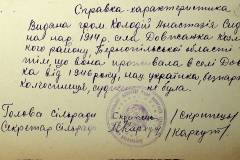 Справка-характеристика
Видана гром. Колодій Анастасія
нар. 1914 р. села Довжанка
ного району, Тернопільської області
тім, що вона проживала в селі Дов
ка від 1946 року, нац. українка, безпар
колгоспниця, судимою не була.
Голова сільради
Секретар сільради